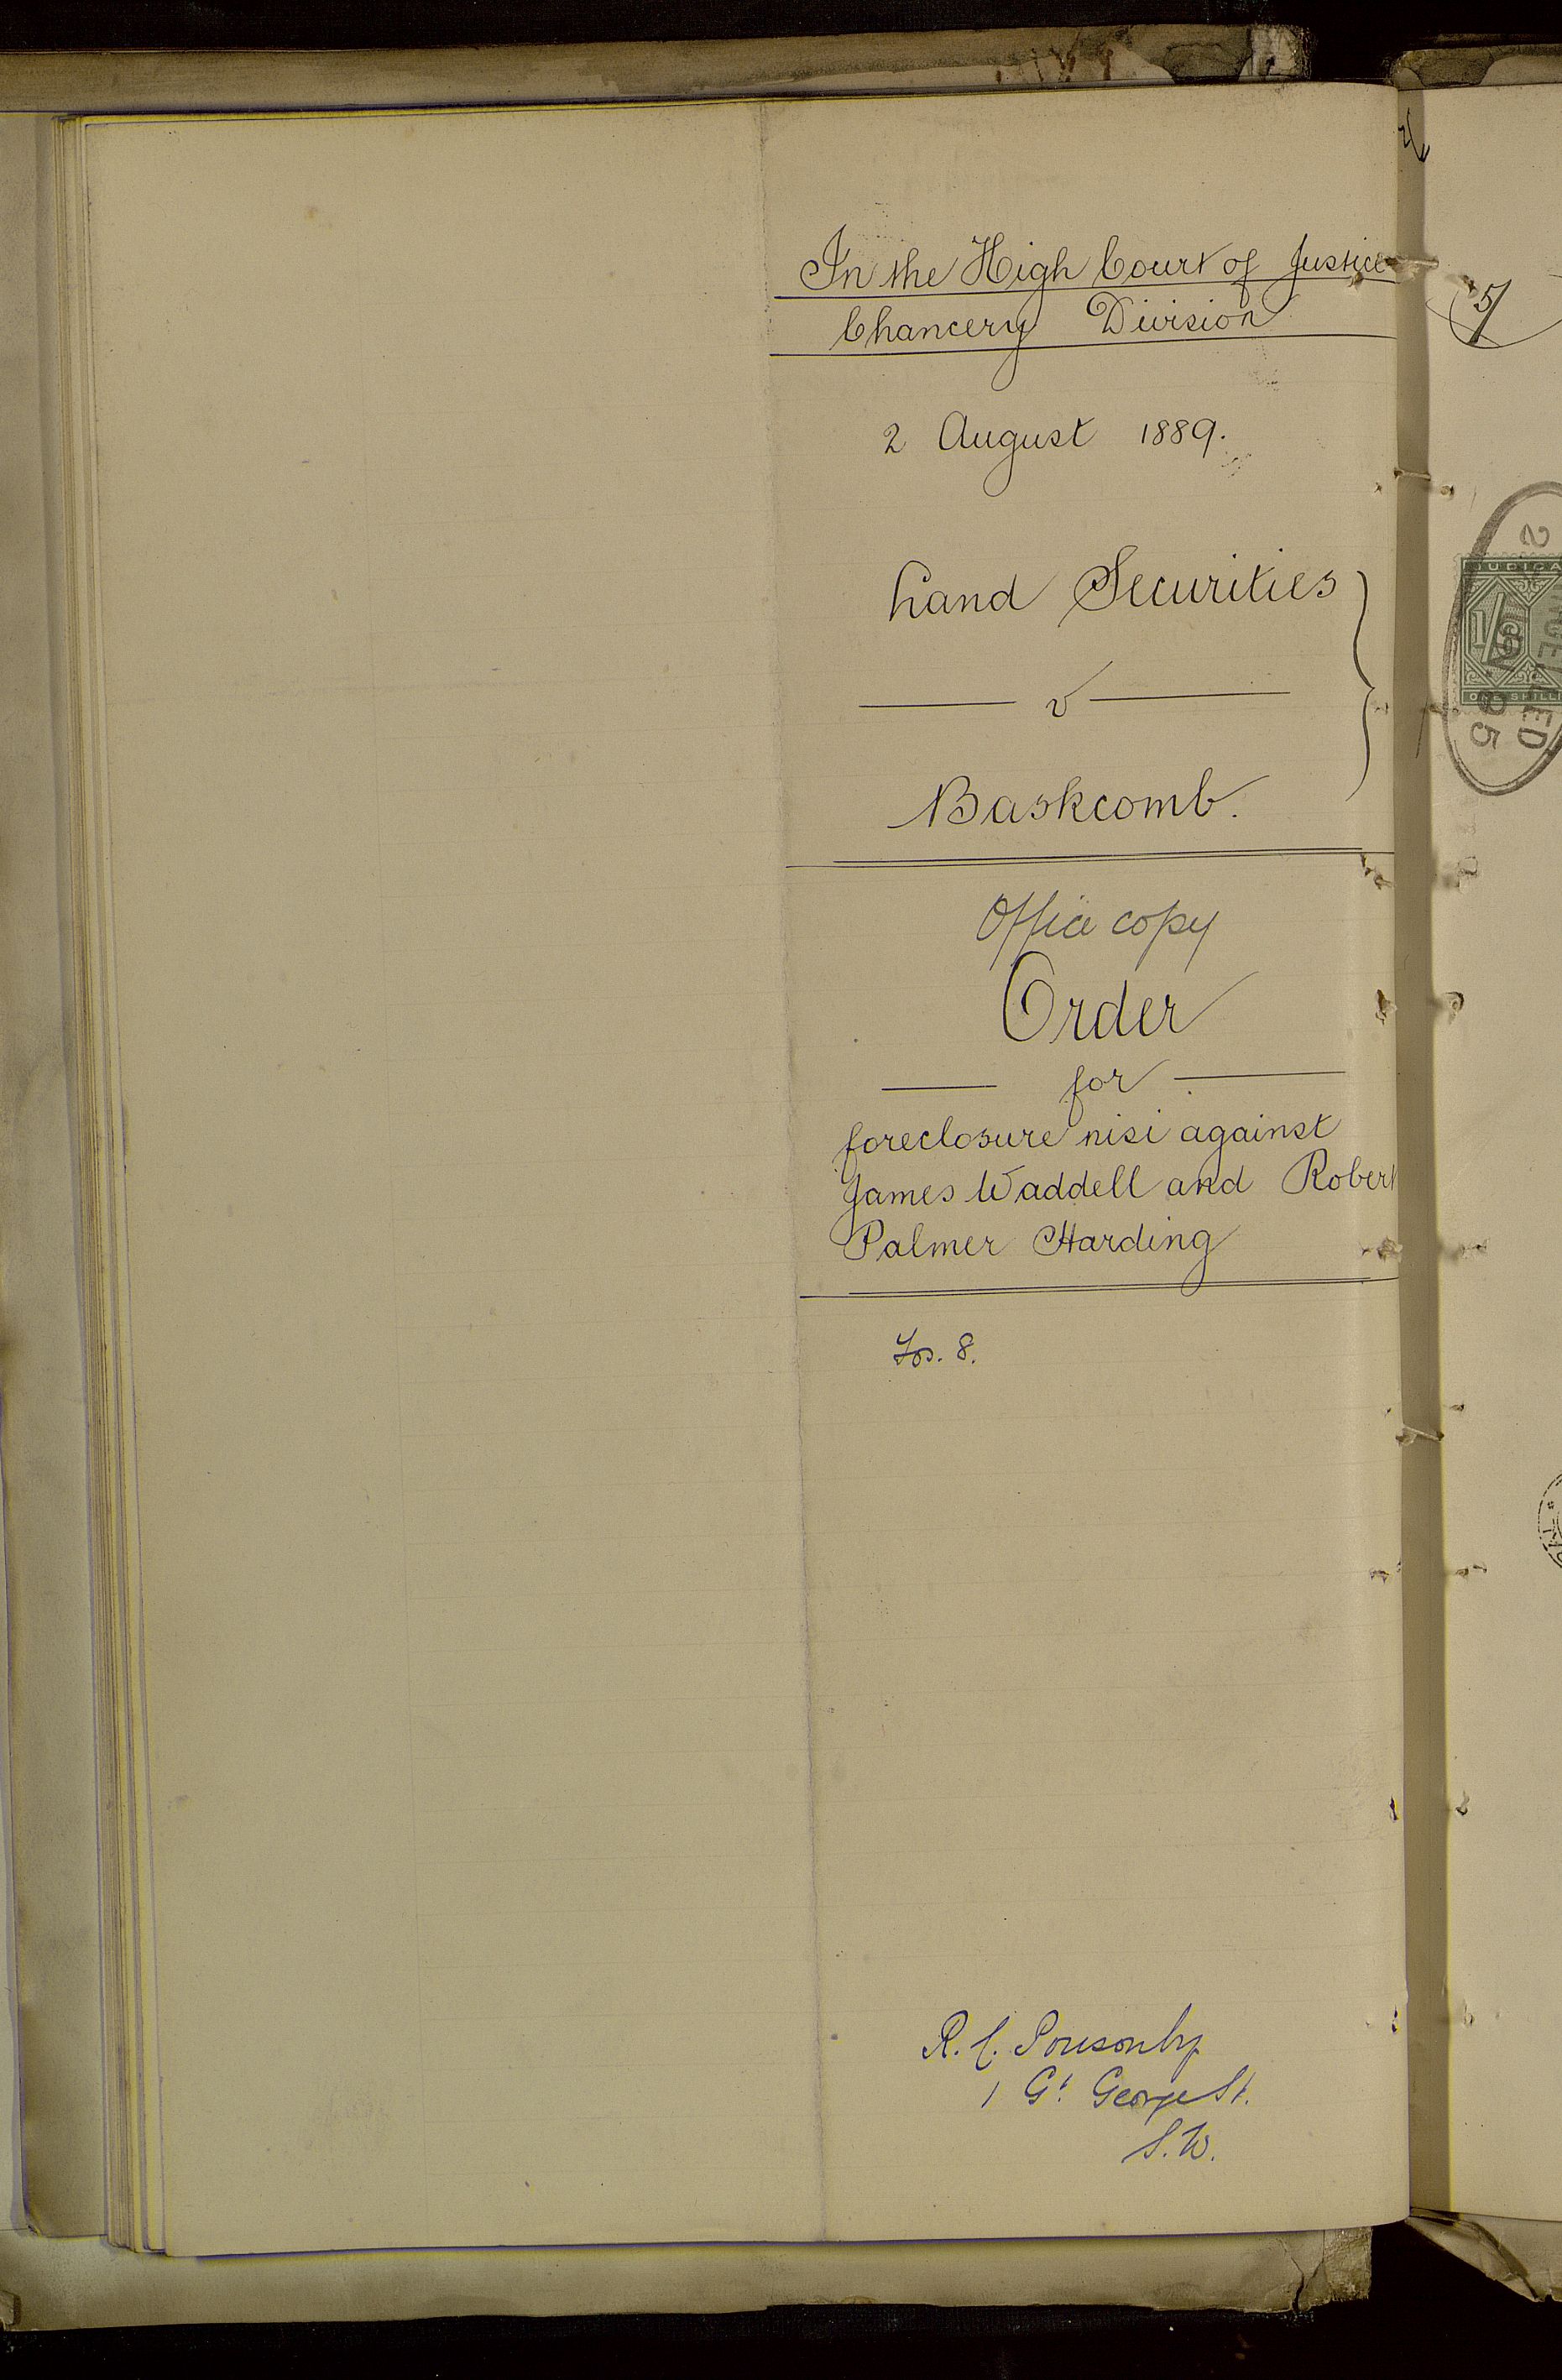 In the High Court of Justice
Chancery Division
2 August 1889.
Land Securities
v
Baskcomb.
Office copy
Order
for
foreclosure nisi against
James Waddell and Robert
Palmer Harding
Fos. 8.
R. C. Ponsonby
1 Gt. George St.
S.W.
5/
JUDICA
1/
ONE SHILLI